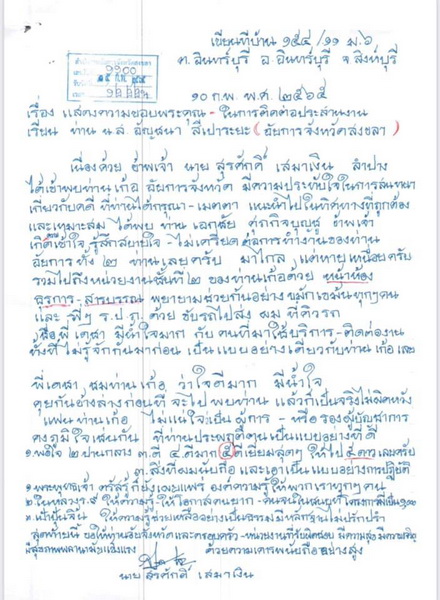 เขียนที่บ้าน ๑๕๔/๑๑ ม.๖
ต.อินทร์บุรี อ.อินทร์บุรี จ.สิงห์บุรี
๑๐ ก.พ. พ.ศ. ๒๕๖๕
เรื่อง แสดงความขอบพระคุณ - ในการติดต่อประสานงาน
เรียน ท่าน น.ส. อัญชนา สีเปาระยะ (อัยการจังหวัดสงขลา)
เนื่องด้วย ข้าพเจ้า นาย สุรศักดิ์ เสมาเงิน ลำปาง
ได้เข้าพบท่านเก้อ อัยการจังหวัด มีความประทับใจในการสนทนา
เกี่ยวกับคดี ที่ท่านได้กรุณา - เมตตา แนะนำไปในทิศทางที่ถูกต้อง
และเหมาะสม ได้พบ ท่าน เอกชัย ข้าพเจ้า
เกิดเข้าใจ รู้สึกสบายใจ - ไม่เครียด การทำงานของท่าน
อัยการ ทั้ง ๒ ท่านเลยครับ มาไกล แต่หายเหนื่อยครับ
รวมไปถึงหน่วยงานชั้นที่ ๒ ของท่านเก้อด้วย หน้าห้อง
ธุรการ - สารบรรณ พยายามช่วยกันอย่างขมักเขม้นทุกๆคน
และ พี่ๆ ร.ป.ภ. ด้วย ขับรถไปส่ง ผม ที่คิวรถ
ชื่อพี่เดชา มีน้ำใจมาก กับ คนที่มาใช้บริการ - ติดต่องาน
ทั้งที่ไม่รู้จักกันมาก่อน เป็นแบบอย่างเดียวกับท่าน เก้อ เลย
พี่เดชา ชมท่านเก้อ ว่าใจดีมาก มีน้ำใจ
คุยกันข้างล่างก่อนที่จะไป พบท่าน แล้วก็เป็นจริงไม่ผิดหวัง
แฟนท่านเก้อ ไม่แน่ใจเป็น ผู้การ - หรือ รองผู้บัญชาการ
คงภูมิใจเช่นกัน ที่ท่านประพฤติตนเป็นแบบอย่างที่ดี
๑ พอใช้ ๒ ปานกลาง ๓ ดี ๔ ดีมาก ๕ ดีเยี่ยมสุดๆ ให้ไป ๕ ดาว เลยครับ
๓ สิ่งที่ผมนับถือ และเอาเป็นแบบอย่างการปฏิบัติ
๑ พระพุทธเจ้า ตรัสรู้ก็ยังเผยแพร่ องค์ความรู้ให้พวกเราทุกๆคน
๒ ในหลวง ร.๙ ให้ความรู้ - ให้โอกาสคนยาก - คนจน
ให้ความรู้ช่วยเหลืออย่างเป็นธรรมมีหลักฐานไม่ปรักปรำ
สุดท้ายนี้ ขอให้ท่านอัยการจังหวัดและครอบครัว - หน่วยงานที่รับผิดชอบ มีความสุข
มีสุขภาพพลานามัยแข็งแรง ด้วยความเคารพนับถืออย่างสูง
นาย สุรศักดิ์ เสมาเงิน